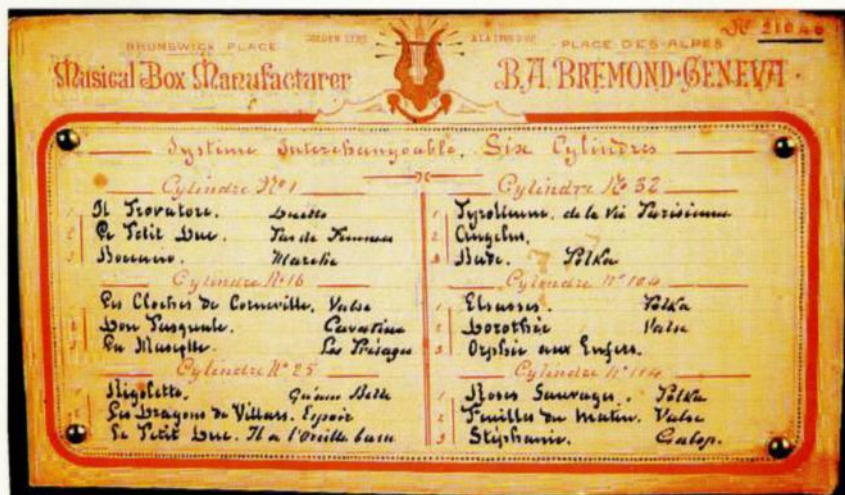 Nº 21046
BRUNSWICK PLACE
GOLDEN LYRE
A LA LYRE D'OR
PLACE DES ALPES
Musical Box Manufacturer
B.A. BREMOND GENEVA
Systime Interchangeable. Six Cylindres
Cylindre Nº 1
1 Il Trovatore. Duetto
2 Le Petit Duc. Pas de Femmes
3 Boccacio. Marche
Cylindre Nº 16
1 Les Cloches de Corneville. Valse
2 Don Pasquale. Cavatine
3 La Mascotte. Les Présages
Cylindre Nº 25
1 Rigoletto.
2 Les Dragons de Villars. Espoir
3 Le Petit Duc. Il a l'Oreille basse
Cylindre Nº 32
1 Tyrolienne de la Vie Parisienne
2 Angelus.
3 Polka
Cylindre Nº 104
1 Polka
2 Dorothée Valse
3 Orphée aux Enfers.
Cylindre Nº 114
1 Roses Sauvages. Polka
2 Feuilles du Matin. Valse
3 Stéphanie. Galop.